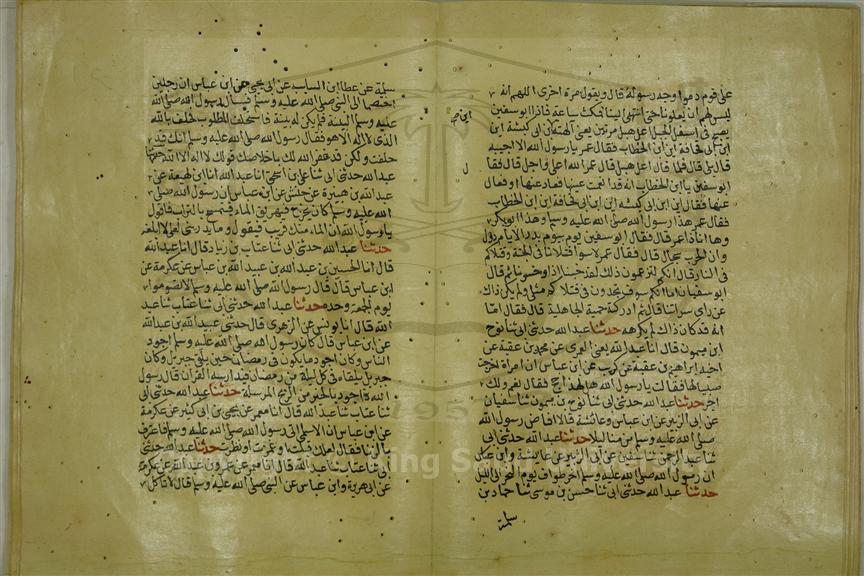 على قوم دموا وجه رسوله قال ويقول مرة اخرى اللهم انه
ليس لهم ان يعلونا حتى انتهى الينا فمكث ساعة فاذا ابو سفين
يصيح في اسفل الجبل اعل هبل مرتين يعني الهته اين ابن ابي كبشة اين
ابن ابي قحافة اين ابن الخطاب فقال عمر يا رسول الله الا اجيبه
قال بلى قال فلما قال اعل هبل قال عمر الله اعلى واجل قال فقال
ابو سفين يا ابن الخطاب انه قد انعمت عينها فعاد عنها او فعال
عنها فقال اين ابن ابي كبشة اين ابن ابي قحافة اين ابن الخطاب
فقال عمر هذا رسول الله صلى الله عليه وسلم وهذا ابو بكر
وها انا ذا عمر قال فقال ابو سفين يوم بيوم بدر الايام دول
وان الحرب سجال قال فقال عمر لا سوا قتلانا في الجنة وقتلاكم
في النار قال انكم لتزعمون ذلك لقد خبنا اذا وخسرنا ثم قال
ابو سفيان اما انكم سوف تجدون في قتلاكم مثلى ولم يكن ذاك
عن راي سراتنا قال ثم ادركته حمية الجاهلية قال فقال اما
انه قد كان ذاك لم يكرهه حدثنا عبد الله حدثني ابي ثنا نوح
ابن ميمون قال انا عبد الله يعني العمري عن محمد بن عقبة عن
اخيه ابراهيم بن عقبة عن كريب عن ابن عباس ان امراة اخرجت
صبيا لها فقالت يا رسول الله هل لهذا حج فقال نعم ولك
اجر حدثنا عبد الله حدثني ابي ثنا نوح بن ميمون ثنا سفيان
عن ابي الزبير عن ابن عباس وعائشة قالا افاض رسول الله
صلى الله عليه وسلم من منا ليلا حدثنا عبد الله حدثني ابي
ثنا عبد الرحمن ثنا سفين عن ابي الزبير عن عائشة وابن عباس
ان رسول الله صلى الله عليه وسلم اخر طواف يوم النحر الى الليل
حدثنا عبد الله حدثني ابي ثنا حسن بن موسى ثنا حماد بن
سلمة
سلمة عن عطا ابن السايب عن ابي يحيى عن ابن عباس ان رجلين
اختصما الى النبي صلى الله عليه وسلم فسال رسول الله صلى الله
عليه وسلم البينة فلم يكن له بينة فاستحلف المطلوب فحلف بالله
الذي لا اله الا هو فقال رسول الله صلى الله عليه وسلم انك قد
حلفت ولكن قد غفر الله لك باخلاصك قولك لا اله الا الله حدثنا
عبد الله حدثني ابي ثنا علي بن اسحق انا عبد الله انا ابن لهيعة عن
عبد الله بن هبيرة عن حنش عن ابن عباس ان رسول الله صلى
الله عليه وسلم كان يخرج فيهريق الماء فيتمسح بالتراب فاقول
يا رسول الله ان الماء منك قريب فيقول وما يدريني لعلي لا ابلغه
حدثنا عبد الله حدثني ابي ثنا عتاب بن زياد قال انا عبد الله
قال انا الحسين بن عبد الله بن عبيد الله بن عباس عن عكرمة عن
ابن عباس قال قال رسول الله صلى الله عليه وسلم لا تصوموا
يوم الجمعة وحده حدثنا عبد الله حدثني ابي ثنا عتاب ثنا عبد
الله قال انا يونس عن الزهري قال حدثني عبيد الله بن عبد الله
عن ابن عباس قال كان رسول الله صلى الله عليه وسلم اجود
الناس وكان اجود ما يكون في رمضان حين يلقى جبريل وكان
جبريل يلقاه في كل ليلة من رمضان فيدارسه القران قال رسول
الله اجود بالخير من الريح المرسلة حدثنا عبد الله حدثني ابي
ثنا عتاب ثنا عبد الله قال انا معمر عن يحيى بن ابي كثير عن عكرمة
عن ابن عباس ان الاسلمي اتى رسول الله صلى الله عليه وسلم فاعترف
بالزنا فقال لعلك قبلت او غمزت او نظرت حدثنا عبد الله حدثني
ابي ثنا عتاب ثنا عبد الله قال انا معمر عن عمرو بن عبد الله عن عكرمة
عن ابي هريرة وابن عباس عن النبي صلى الله عليه وسلم قال لا تاكل